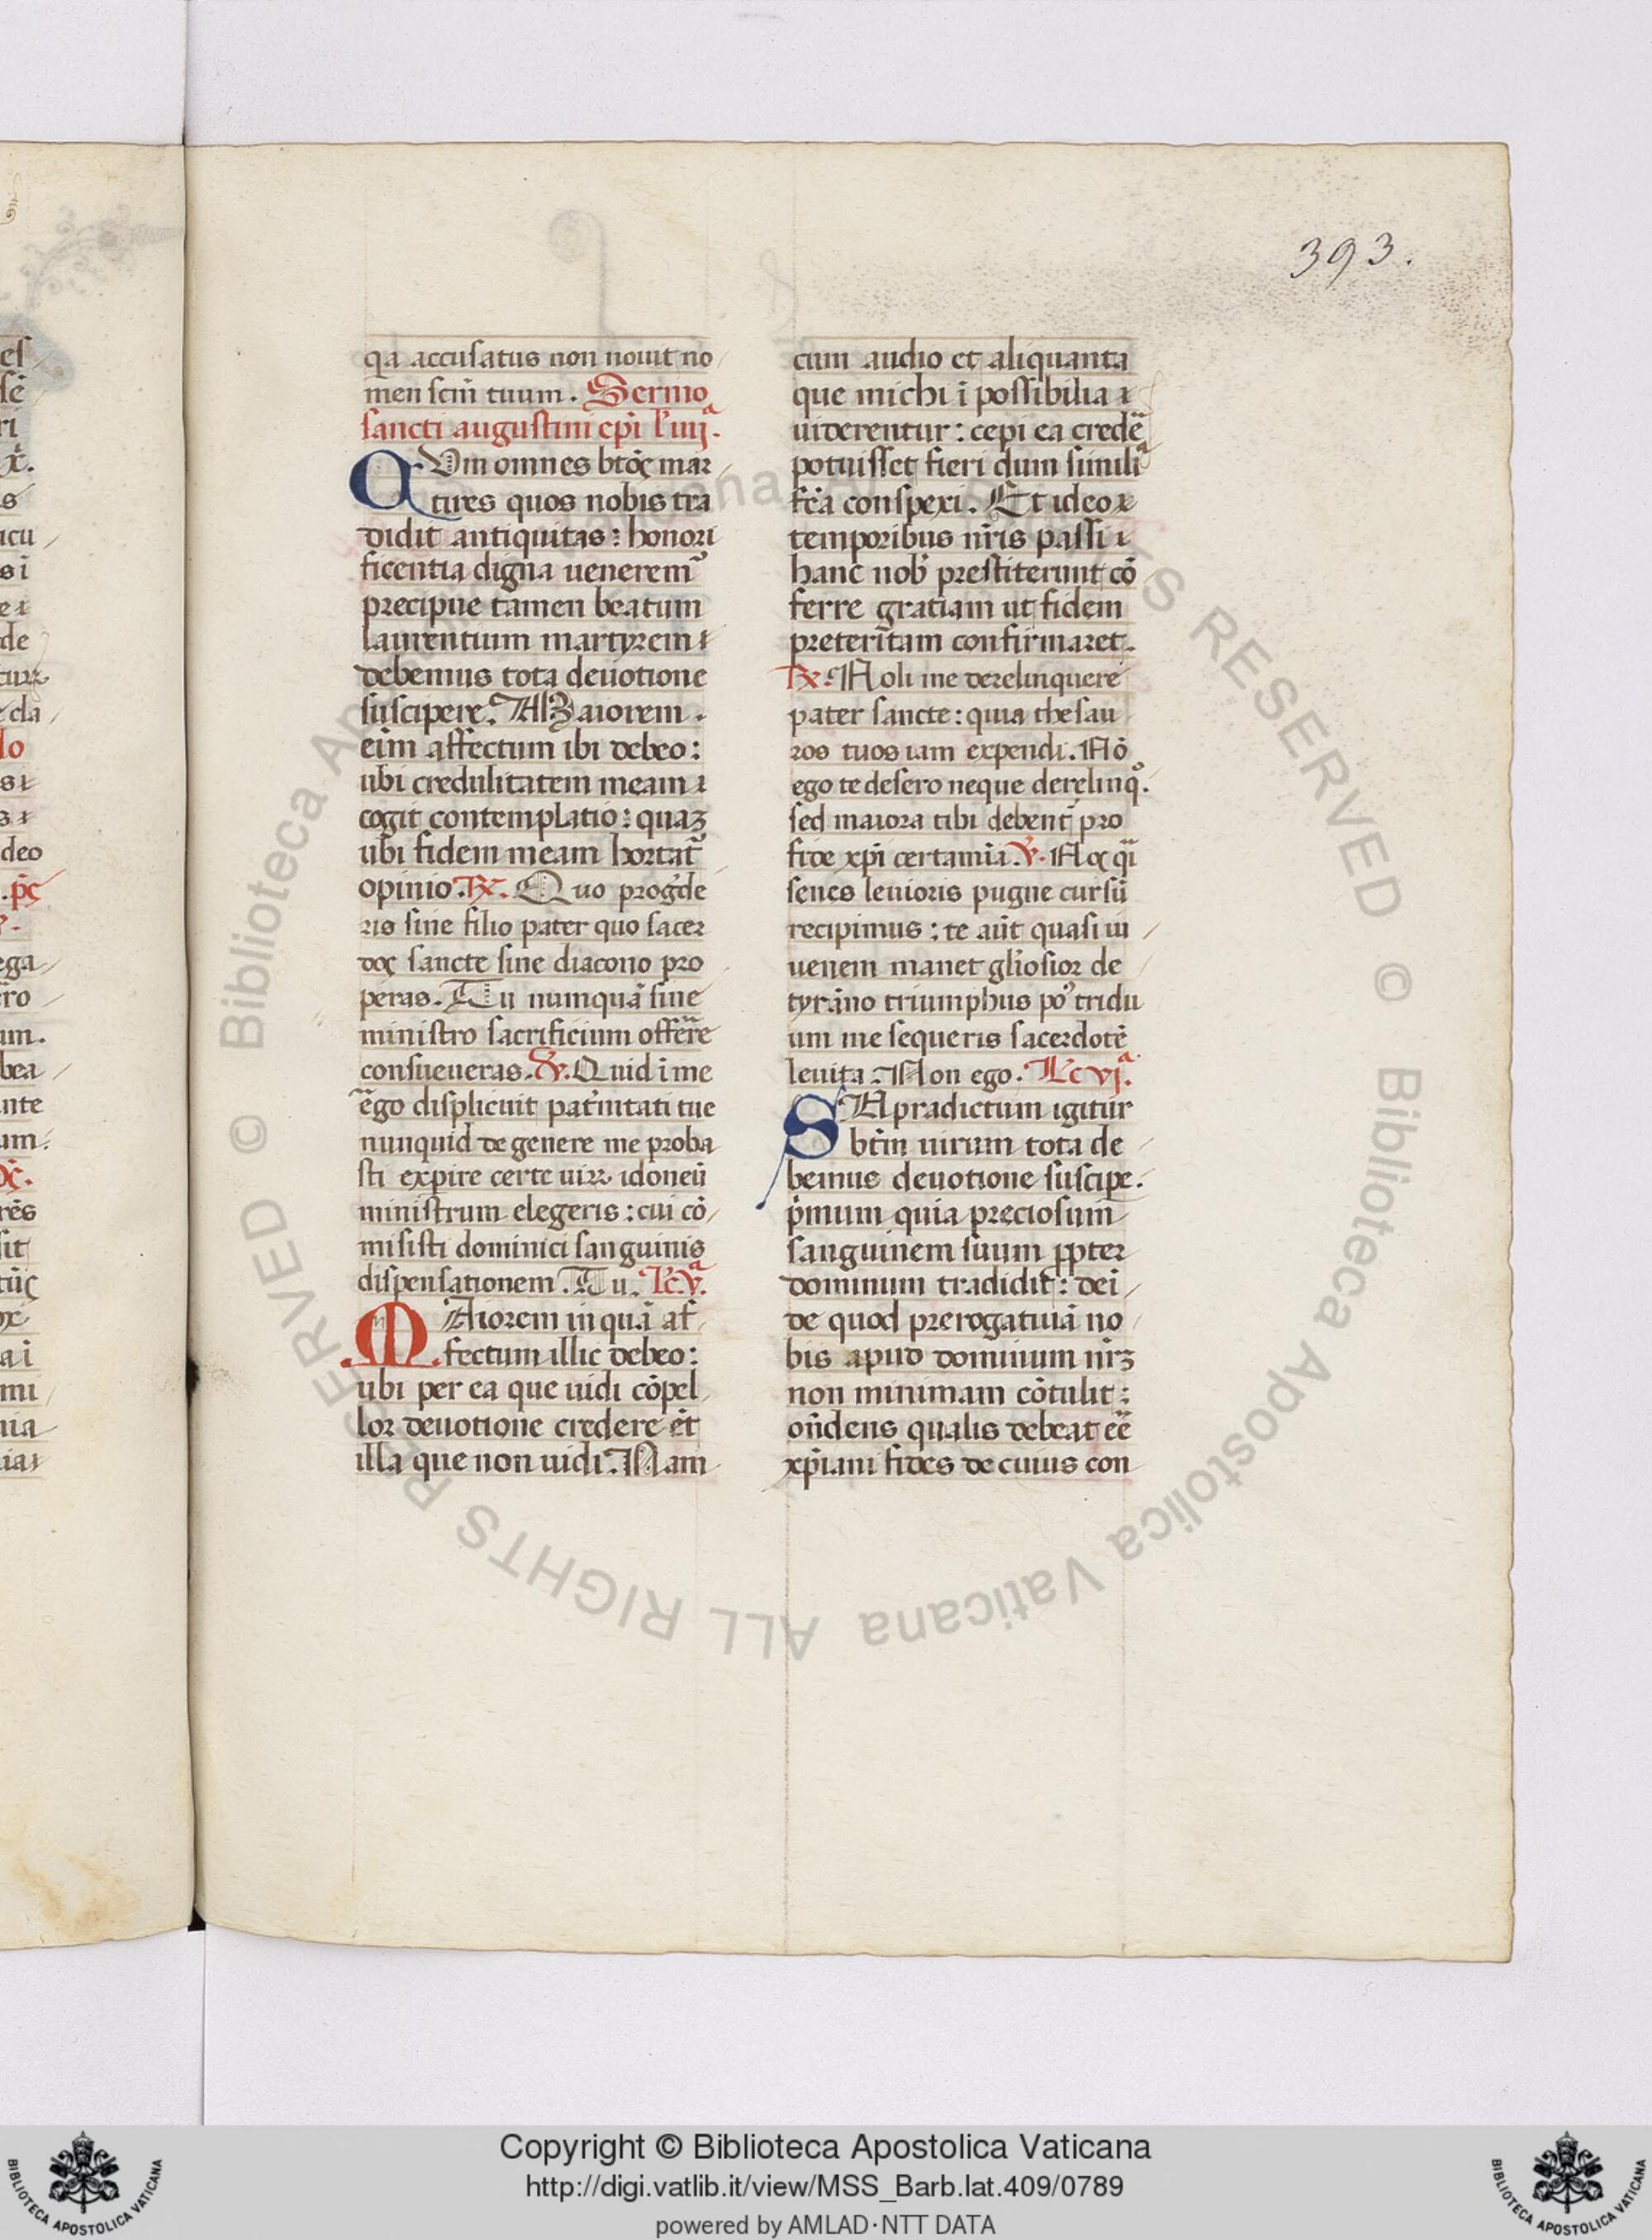 393.
qa accusatus non nouit no
men scm̄ tuum. Sermo
sancti augustini ep̄i l'iiijª.
QVm omnes btōs mar
tires quos nobis tra
didit antiquitas: honori
ficentia digna ueneremᷣ
precipue tamen beatum
laurentium martyrem
debemus tota deuotione
suscipere. Maiorem.
eim̄ affectum ibi debeo:
ubi credulitatem meam
cogit contemplatio: quaꝫ
ubi fidem meam hortatᷣ
opinio. ℟. Quo prog̓de
ris sine filio pater quo sacer
dos sancte sine diacono pro
peras. Tu numquā sine
ministro sacrificium offerre
consueueras. ℣. Quid ī me
ego displicuit pat̓nitati tue
nunquid degenere me proba
sti expire certe utꝝ idoneū
ministrum elegeris: cui cō
misisti dominici sanguinis
dispensationem. Tu. Lc̄.vª.
MAiorem inquā af
fectum illic debeo:
ubi per ea que uidi cōpel
lor deuotione credere et̄
illa que non uidi. Nam
cum audio et aliquanta
que michi ī possibilia
uiderentur: cepi ea credē
potuisset fieri dum similiª
fc̄a conspexi. Et ideo
temporibus nr̄is passi
hanc nob̓ prestiterunt cō
ferre gratiam ut fidem
preteritam confirmaret.
℟. Noli me derelinquere
pater sancte: quia thesau
ros tuos iam expendi. Nō
ego te desero neque derelinqᵒ.
sed maiora tibi debent̄ pro
fide xp̄i certamīa. ℣. Nos qᷓi
senes leuioris pugne cursū
recipimus: te aūt quasi iu
uenem manet gl̓iosior de
tyrāno triumphus poꝰ tridu
um me sequeris sacerdotē
leuita. Non ego. Lc̄ vjª.
SApradictum igitur
btm̄ uirum tota de
bemus deuotione suscipe.
p̓mum quia preciosum
sanguinem suum ꝓpter
dominum tradidit: dei
de quod prerogatiuā no
bis apud dominum nrꝫ
non minimam cōtulit:
on̄dens qualis debeat ēē
xp̄iani fides de cuius con
Copyright © Biblioteca Apostolica Vaticana
http://digi.vatlib.it/view/MSS_Barb.lat.409/0789
powered by AMLAD·NTT DATA